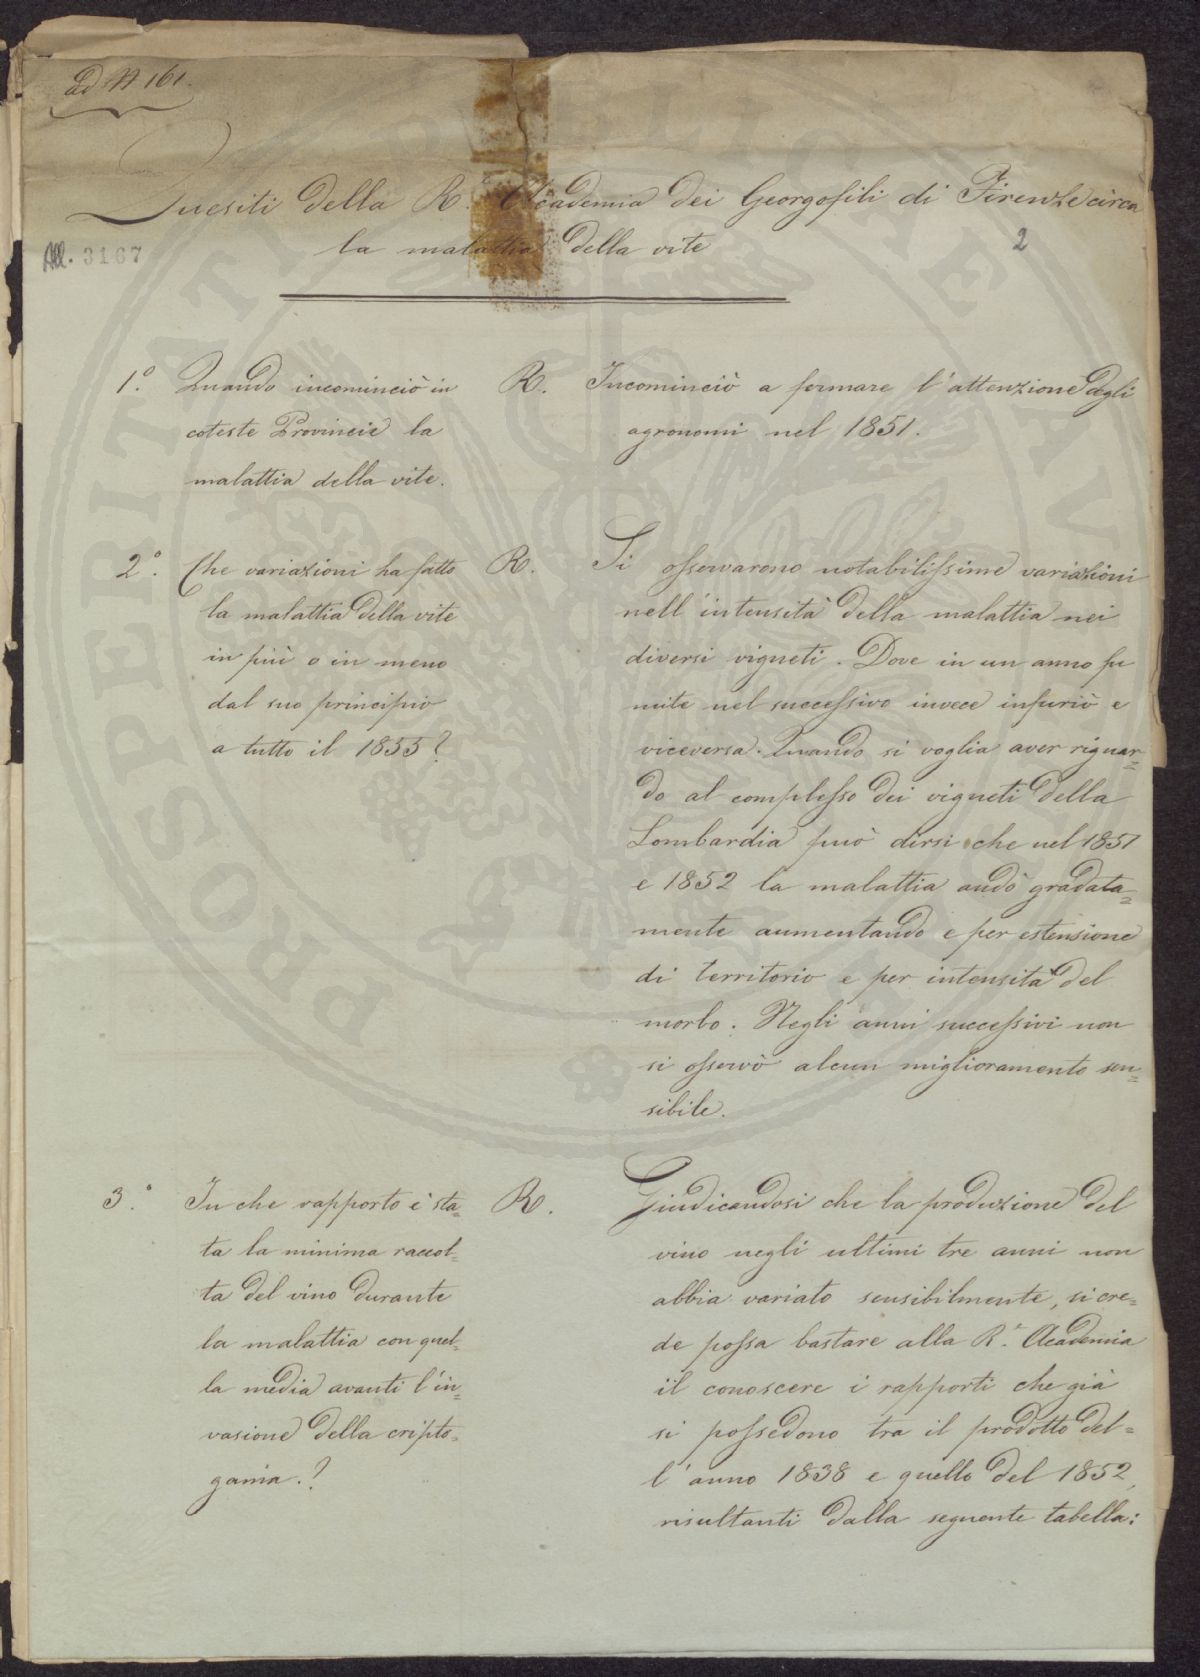 ad N 161.
Quesiti della R.ª Academia dei Georgofili di Firenze circa
la malattia della vite
All. 3167
2
1.º Quando incominciò in
coteste Provincie la
malattia della vite.
R. Incominciò a fermare l'attenzione degli
agronomi nel 1851.
2.º Che variazioni ha fatto
la malattia della vite
in più o in meno
dal suo principio
a tutto il 1855?
R. Si osservarono notabilissime variazioni
nell'intensità della malattia nei
diversi vigneti. Dove in un anno fu
mite nel successivo invece infuriò e
viceversa. Quando si voglia aver riguar=
do al complesso dei vigneti della
Lombardia può dirsi che nel 1851
e 1852 la malattia andò gradata=
mente aumentando e per estensione
di territorio e per intensità del
morbo. Negli anni successivi non
si osservò alcun miglioramento sen=
sibile.
3.º In che rapporto è sta=
ta la minima raccol=
ta del vino durante
la malattia con quel=
la media avanti l'in=
vasione della cripto=
gama.?
R. Giudicandosi che la produzione del
vino negli ultimi tre anni non
abbia variato sensibilmente, si cre=
de possa bastare alla R.ª Academia
il conoscere i rapporti che già
si possedono tra il prodotto del=
l'anno 1838 e quello del 1852,
risultanti dalla seguente tabella:
PROSPERITATI PUBLICAE